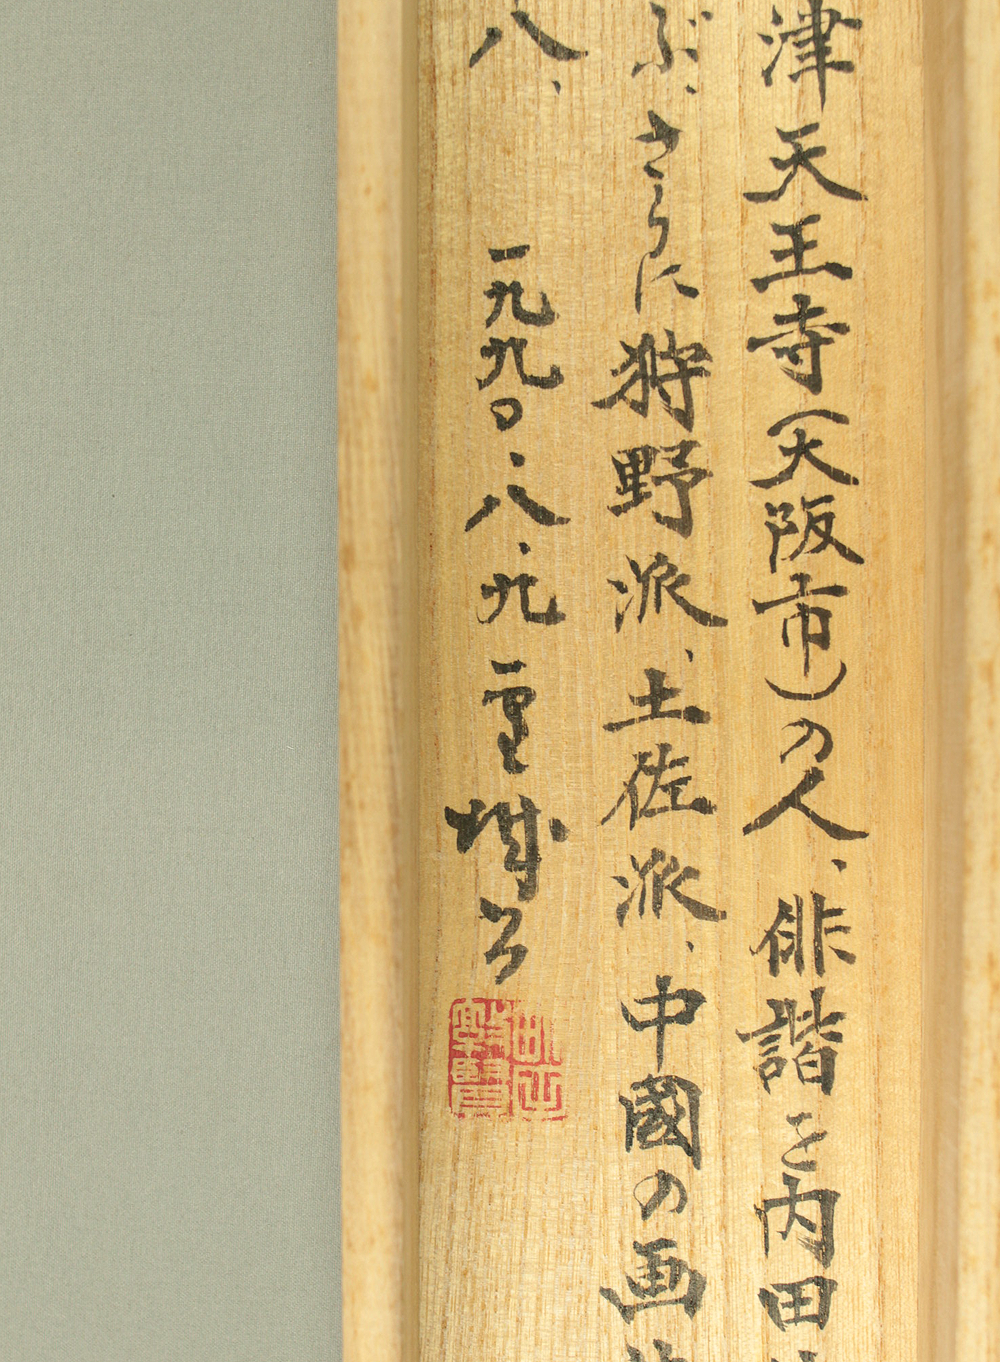 津天王寺(大阪市)の人、俳諧を内田
ぶ、さらに狩野派、土佐派、中國の画
八、
一九九〇・八・九